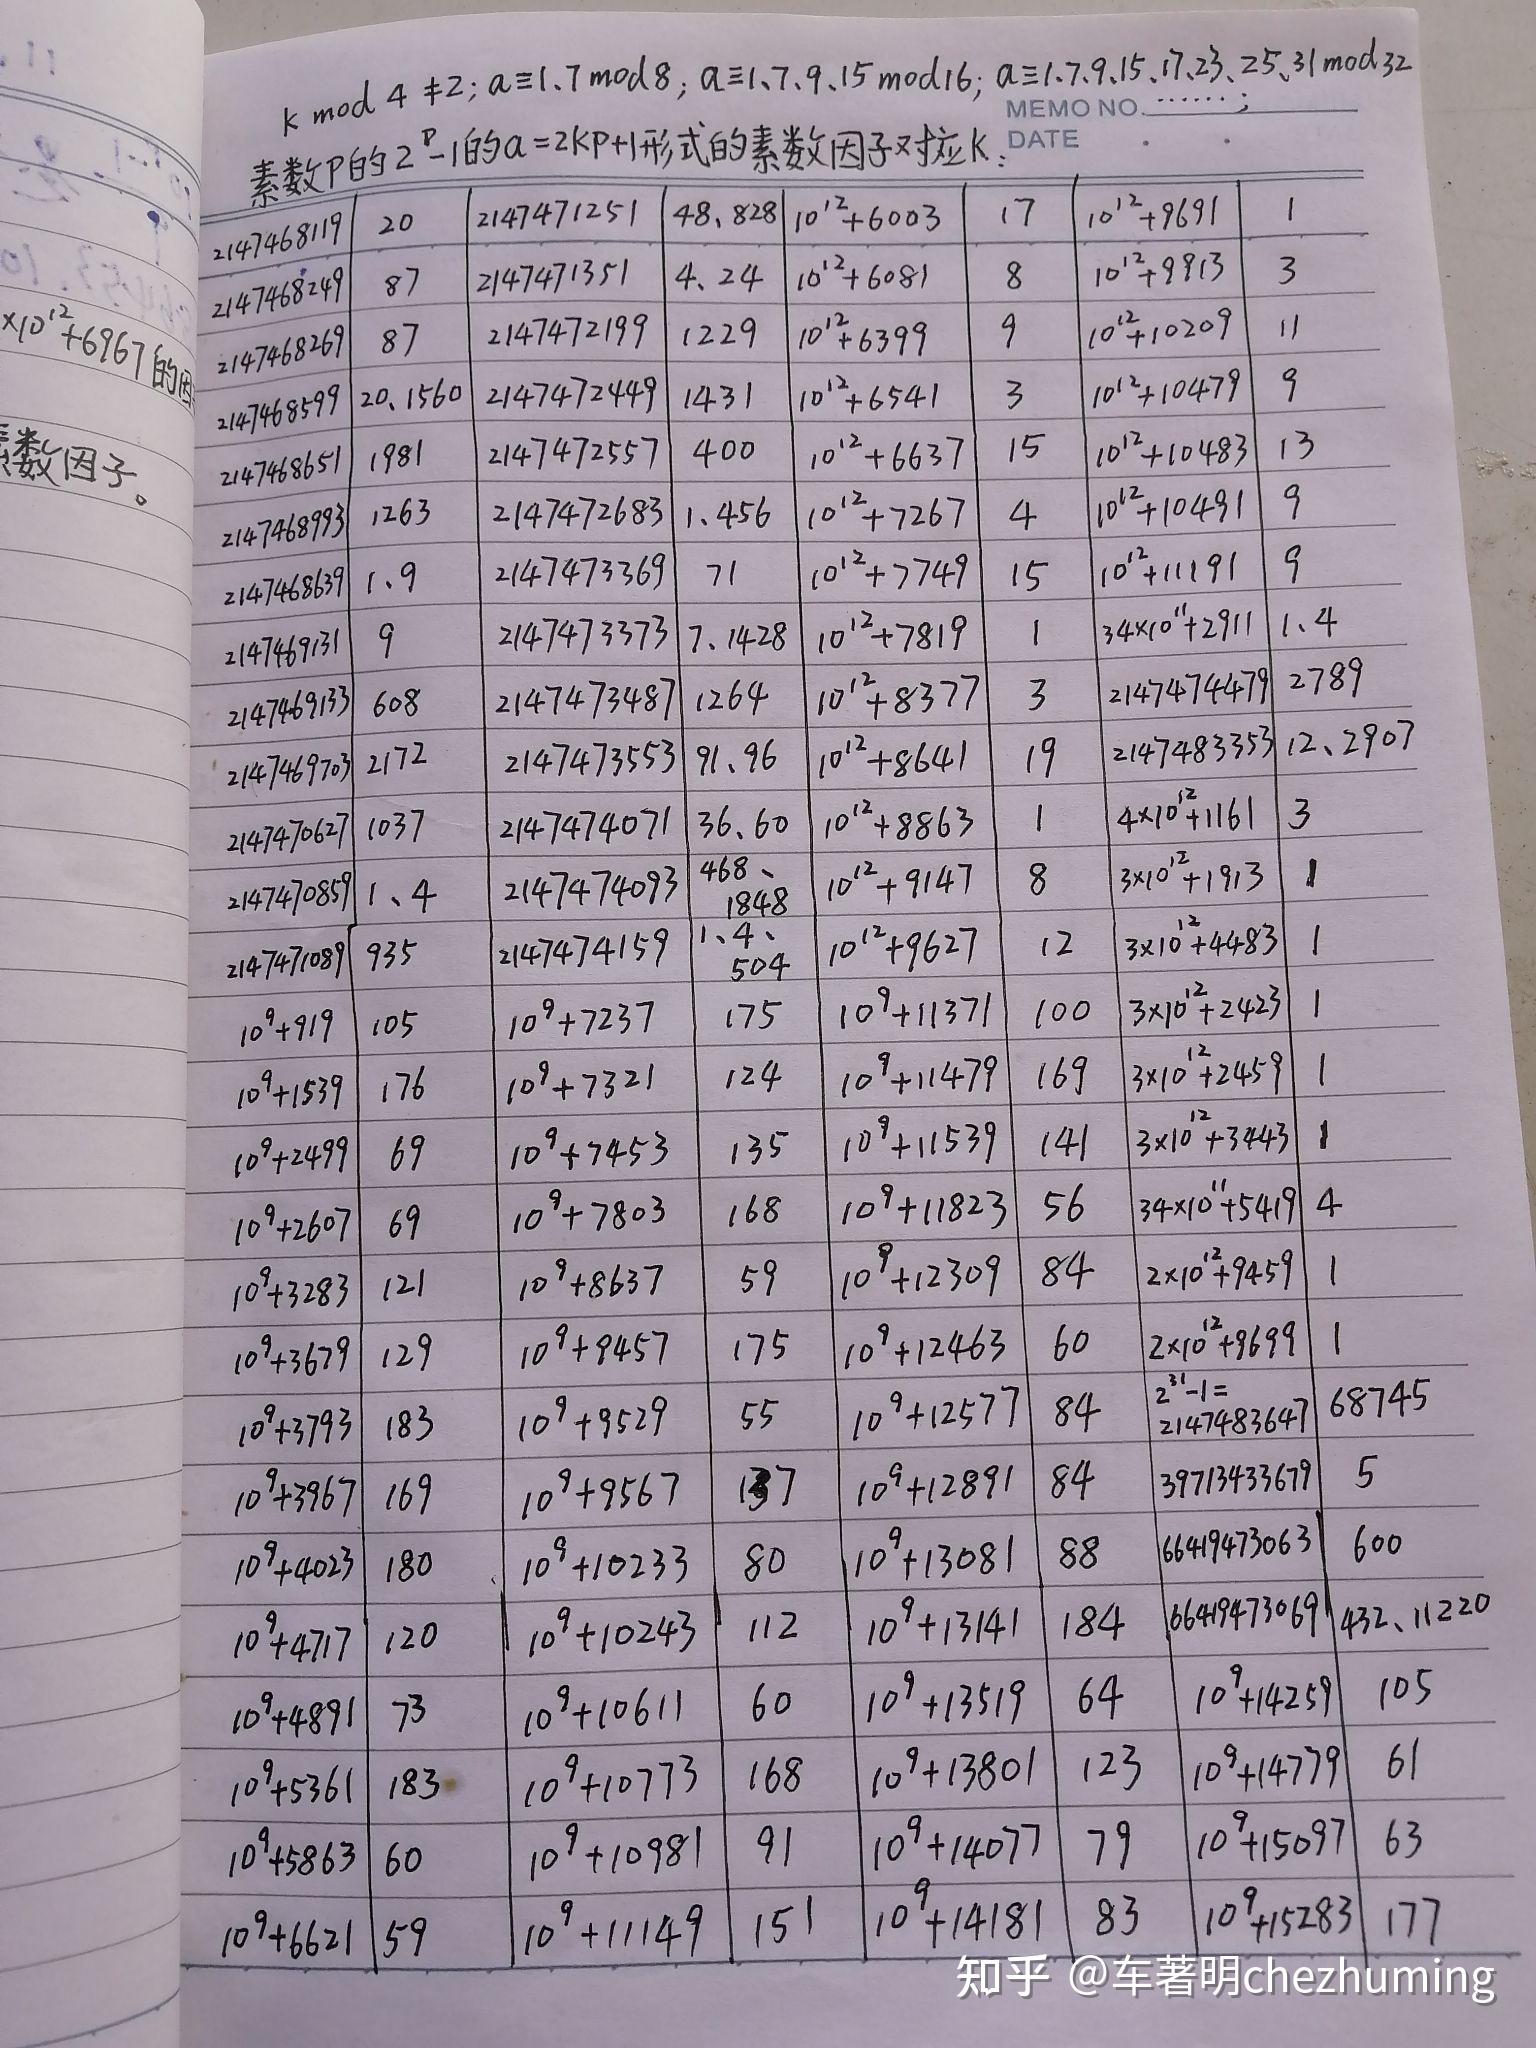 k mod 4 ≠2; a≡1.7 mod 8; a≡1、7、9、15 mod 16; a≡1、7、9、15、17、23、25、31 mod 32
MEMO NO. ;
素数P的2^P-1的a=2KP+1形式的素数因子对应K:
DATE
2147468119 20 2147471251 48.828 10^12+6003 17 10^12+9691 1
2147468249 87 2147471351 4.24 10^12+6081 8 10^12+9913 3
2147468269 87 2147472199 1229 10^12+6399 9 10^12+10209 11
×10^12+6967的因
2147468599 20、1560 2147472449 1431 10^12+6541 3 10^12+10479 9
素数因子。
2147468651 1981 2147472557 400 10^12+6637 15 10^12+10483 13
2147468993 1263 2147472683 1.456 10^12+7267 4 10^12+10491 9
2147468639 1.9 2147473369 71 10^12+7749 15 10^12+11191 9
2147469131 9 2147473373 7.1428 10^12+7819 1 34×10^11+2911 1.4
2147469133 608 2147473487 1264 10^12+8377 3 2147474479 2789
2147469703 2172 2147473553 91.96 10^12+8641 19 2147483353 12、2907
2147470627 1037 2147474071 36.60 10^12+8863 1 4×10^12+1161 3
2147470859 1、4 2147474093 468、1848 10^12+9147 8 3×10^12+1913 1
2147471089 935 2147474159 1.4、504 10^12+9627 12 3×10^12+4483 1
10^9+919 105 10^9+7237 175 10^9+11371 100 3×10^12+2423 1
10^9+1539 176 10^9+7321 124 10^9+11479 169 3×10^12+2459 1
10^9+2499 69 10^9+7453 135 10^9+11539 141 3×10^12+3443 1
10^9+2607 69 10^9+7803 168 10^9+11823 56 34×10^11+5419 4
10^9+3283 121 10^9+8637 59 10^9+12309 84 2×10^12+9459 1
10^9+3679 129 10^9+9457 175 10^9+12463 60 2×10^12+9699 1
10^9+3793 183 10^9+9529 55 10^9+12577 84 2^31-1=2147483647 68745
10^9+3967 169 10^9+9567 137 10^9+12891 84 39713433679 5
10^9+4023 180 10^9+10233 80 10^9+13081 88 66419473063 600
10^9+4717 120 10^9+10243 112 10^9+13141 184 66419473069 432、11220
10^9+4891 73 10^9+10611 60 10^9+13519 64 10^9+14259 105
10^9+5361 183 10^9+10773 168 10^9+13801 123 10^9+14779 61
10^9+5863 60 10^9+10981 91 10^9+14077 79 10^9+15097 63
10^9+6621 59 10^9+11149 151 10^9+14181 83 10^9+15283 177
知乎 @车著明chezhuming